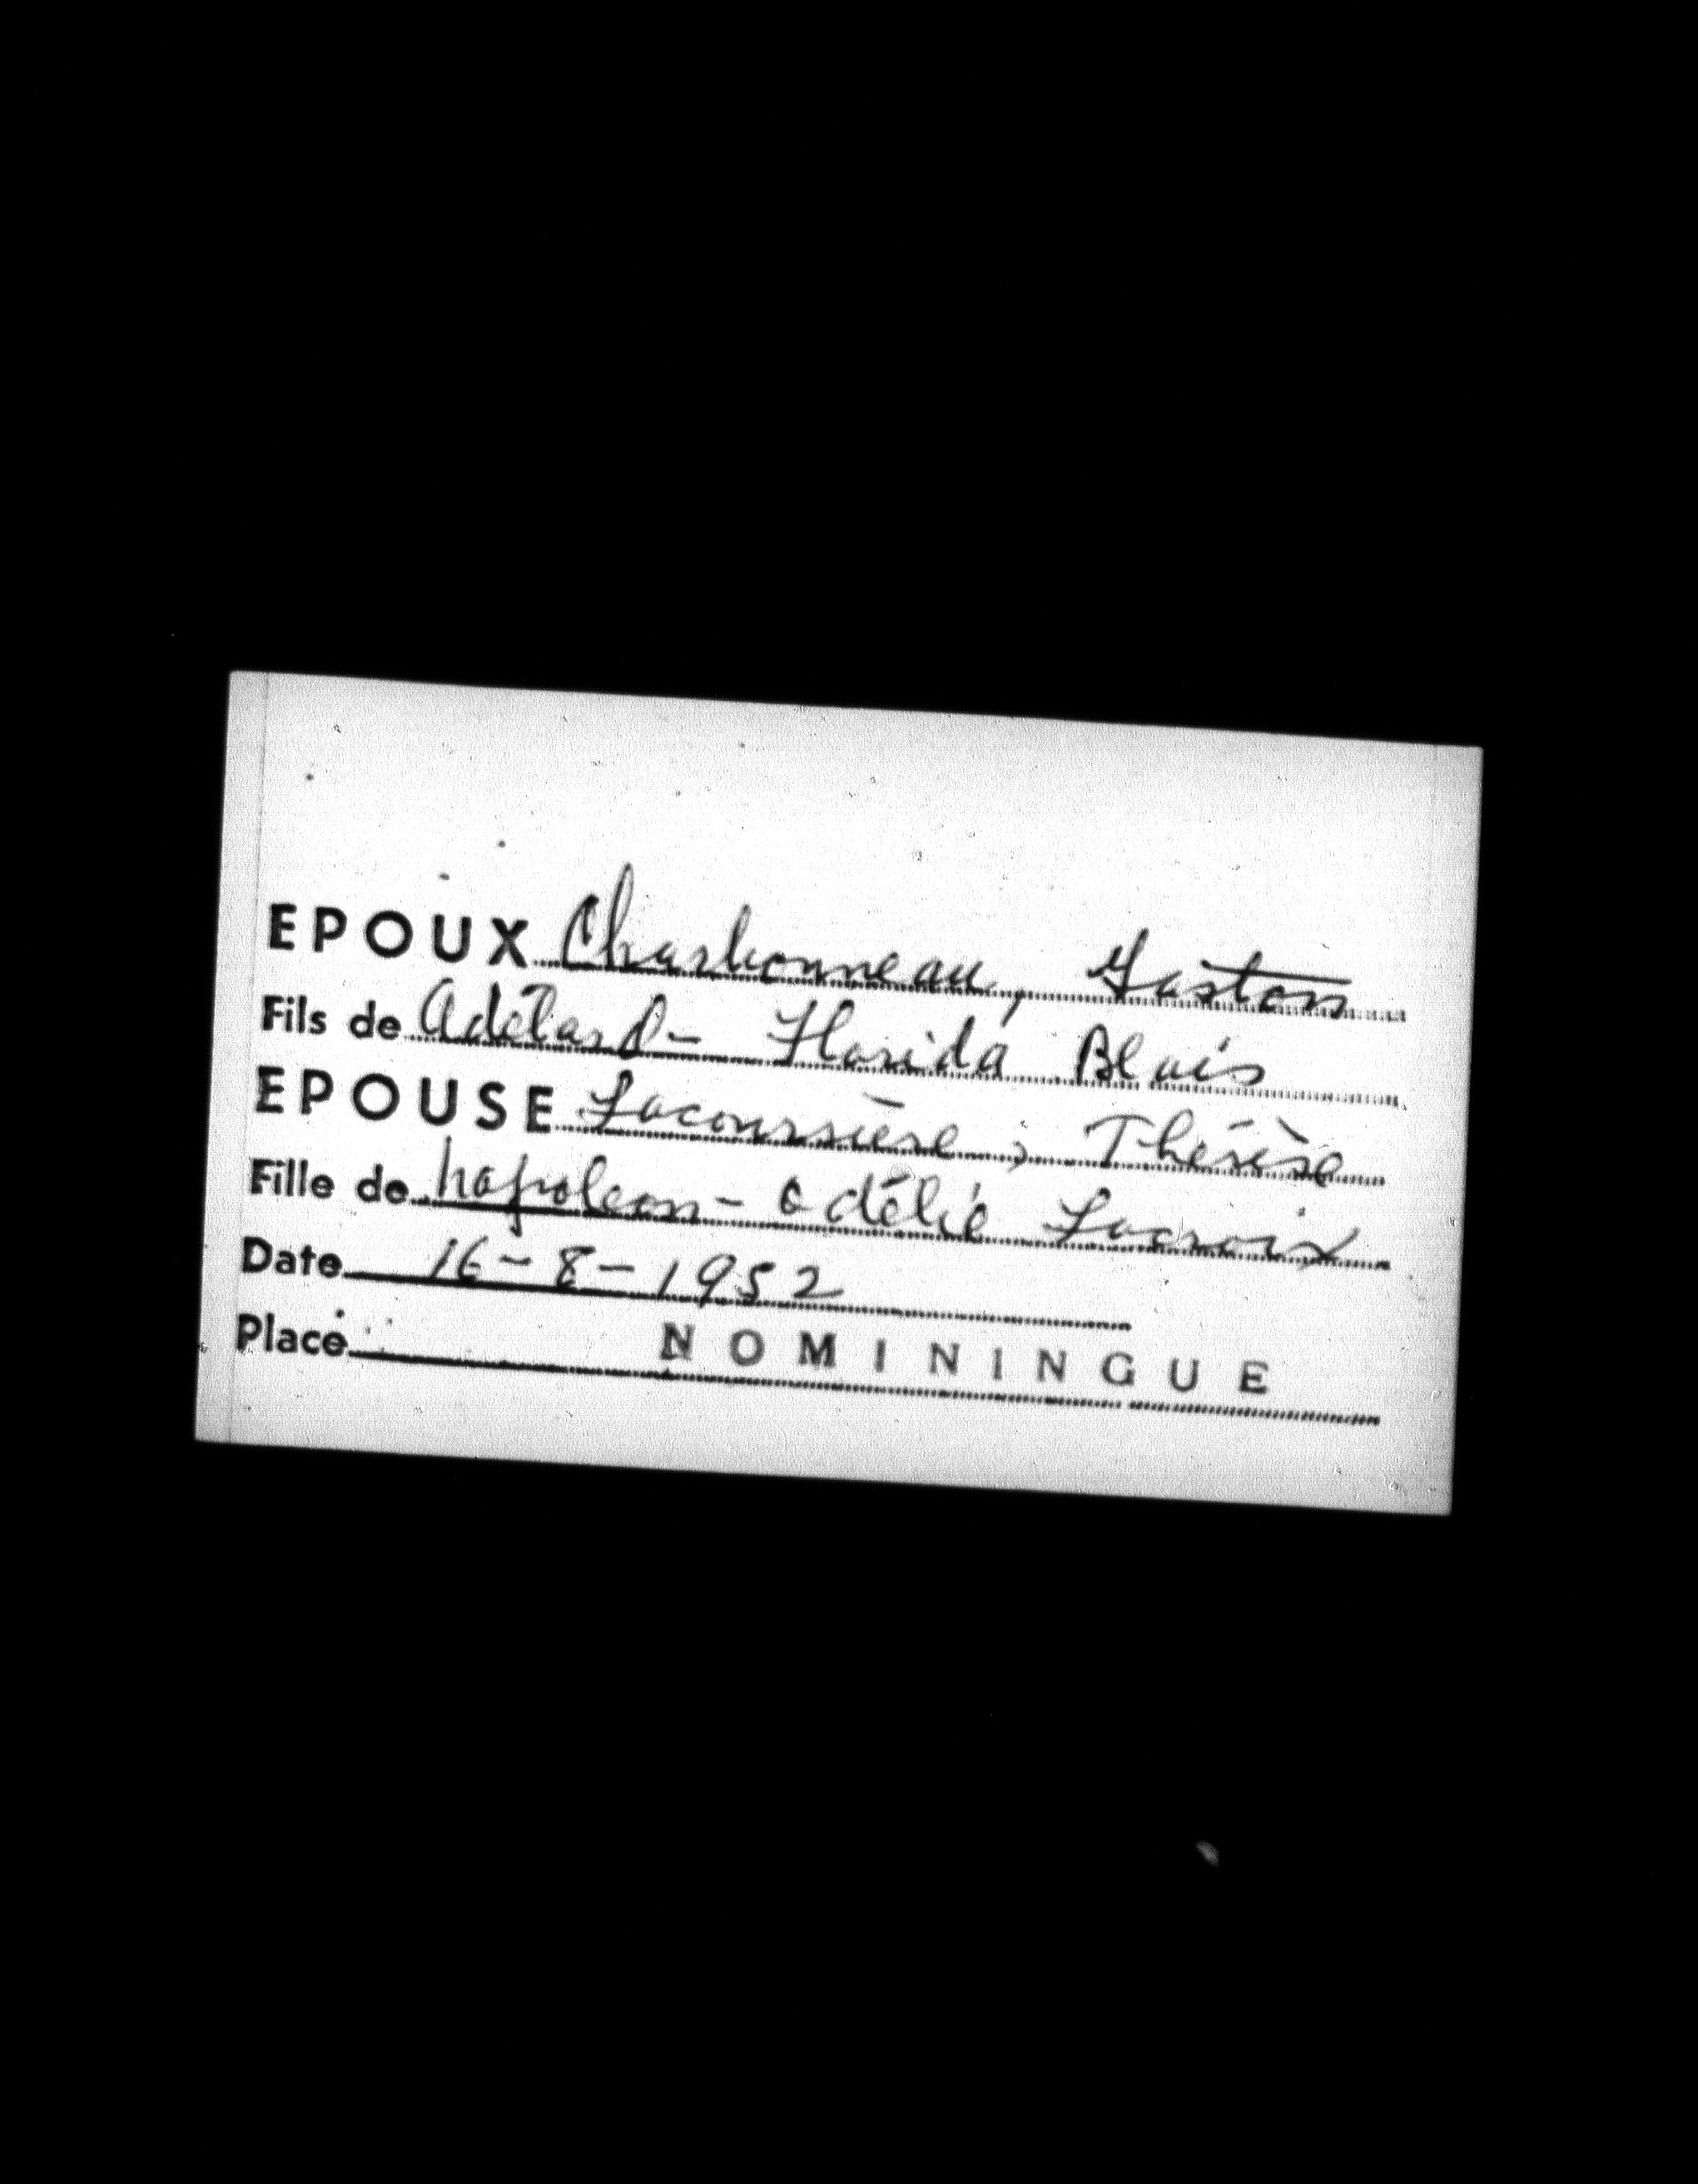 EPOUX Charbonneau, Gaston
Fils de Adélard - Florida Blais
EPOUSE Lacoursière, Thérèse
Fille de napoleon - Odélie Lacroix
Date 16-8-1952
Place NOMININGUE